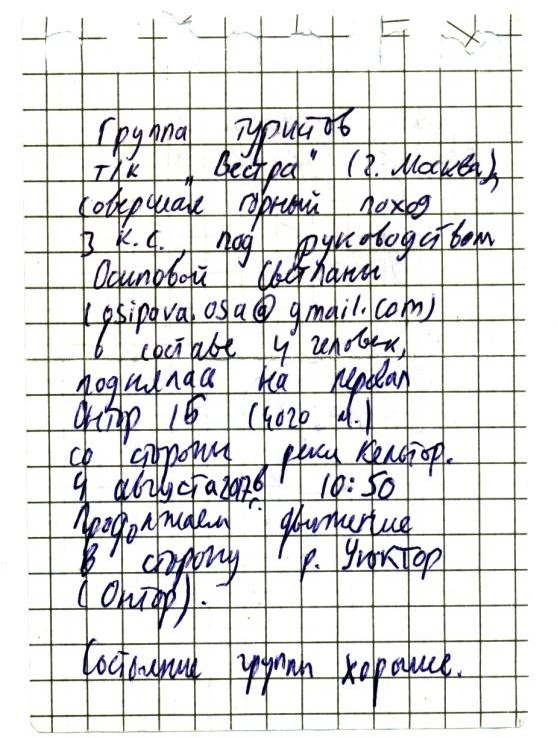 Группа туристов
т/к "Вестра" (г. Москва),
совершая горный поход
3 к.с., под руководством
Осиповой Светланы
(osipova.osa@gmail.com)
в составе 4 человек,
поднялась на перевал
Онтор 1Б (4020 м.)
со стороны реки Кельтор.
4 августа 2017 г. в 10:50
Продолжаем движение
в сторону р. Уюктор
(Онтор).
Состояние группы хорошее.